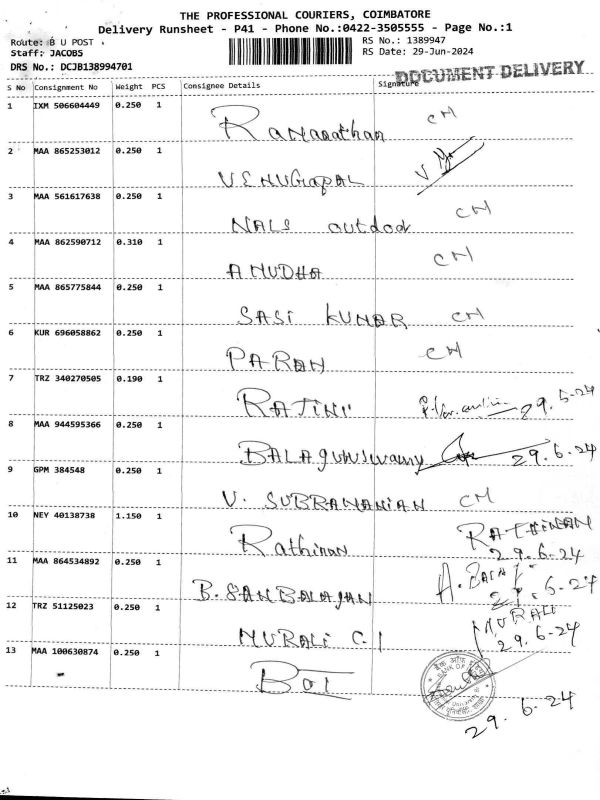 THE PROFESSIONAL COURIERS, COIMBATORE
Delivery Runsheet - P41 - Phone No.:0422-3505555 - Page No.:1
Route: B U POST
RS No.: 1389947
Staff: JACOBS
RS Date: 29-Jun-2024
DRS No.: DCJB138994701
DOCUMENT DELIVERY
S No Consignment No Weight PCS Consignee Details Signature
1 IXM 506604449 0.250 1
CM
2 MAA 865253012 0.250 1
VENUGOPAL V
3 MAA 561617638 0.250 1
NALS outdoor CM
4 MAA 862590712 0.310 1
ANUDHA CM
5 MAA 865775844 0.250 1
SASI KUMAR CM
6 KUR 696058862 0.250 1
PARAN CM
7 TRZ 340270505 0.190 1
RAJINI 29.5-24
8 MAA 944595366 0.250 1
BALAguruswamy 29.6.24
9 GPM 384548 0.250 1
V. SUBRAMANIAN CM
10 NEY 40138738 1.150 1
Rathinan RATHINAN
29.6.24
11 MAA 864534892 0.250 1
B. SANBALAJAN A. BALA
29.6-24
12 TRZ 51125023 0.250 1
MURALI C.I MURALI
29.6-24
13 MAA 100630874 0.250 1
BOI
29.6.24